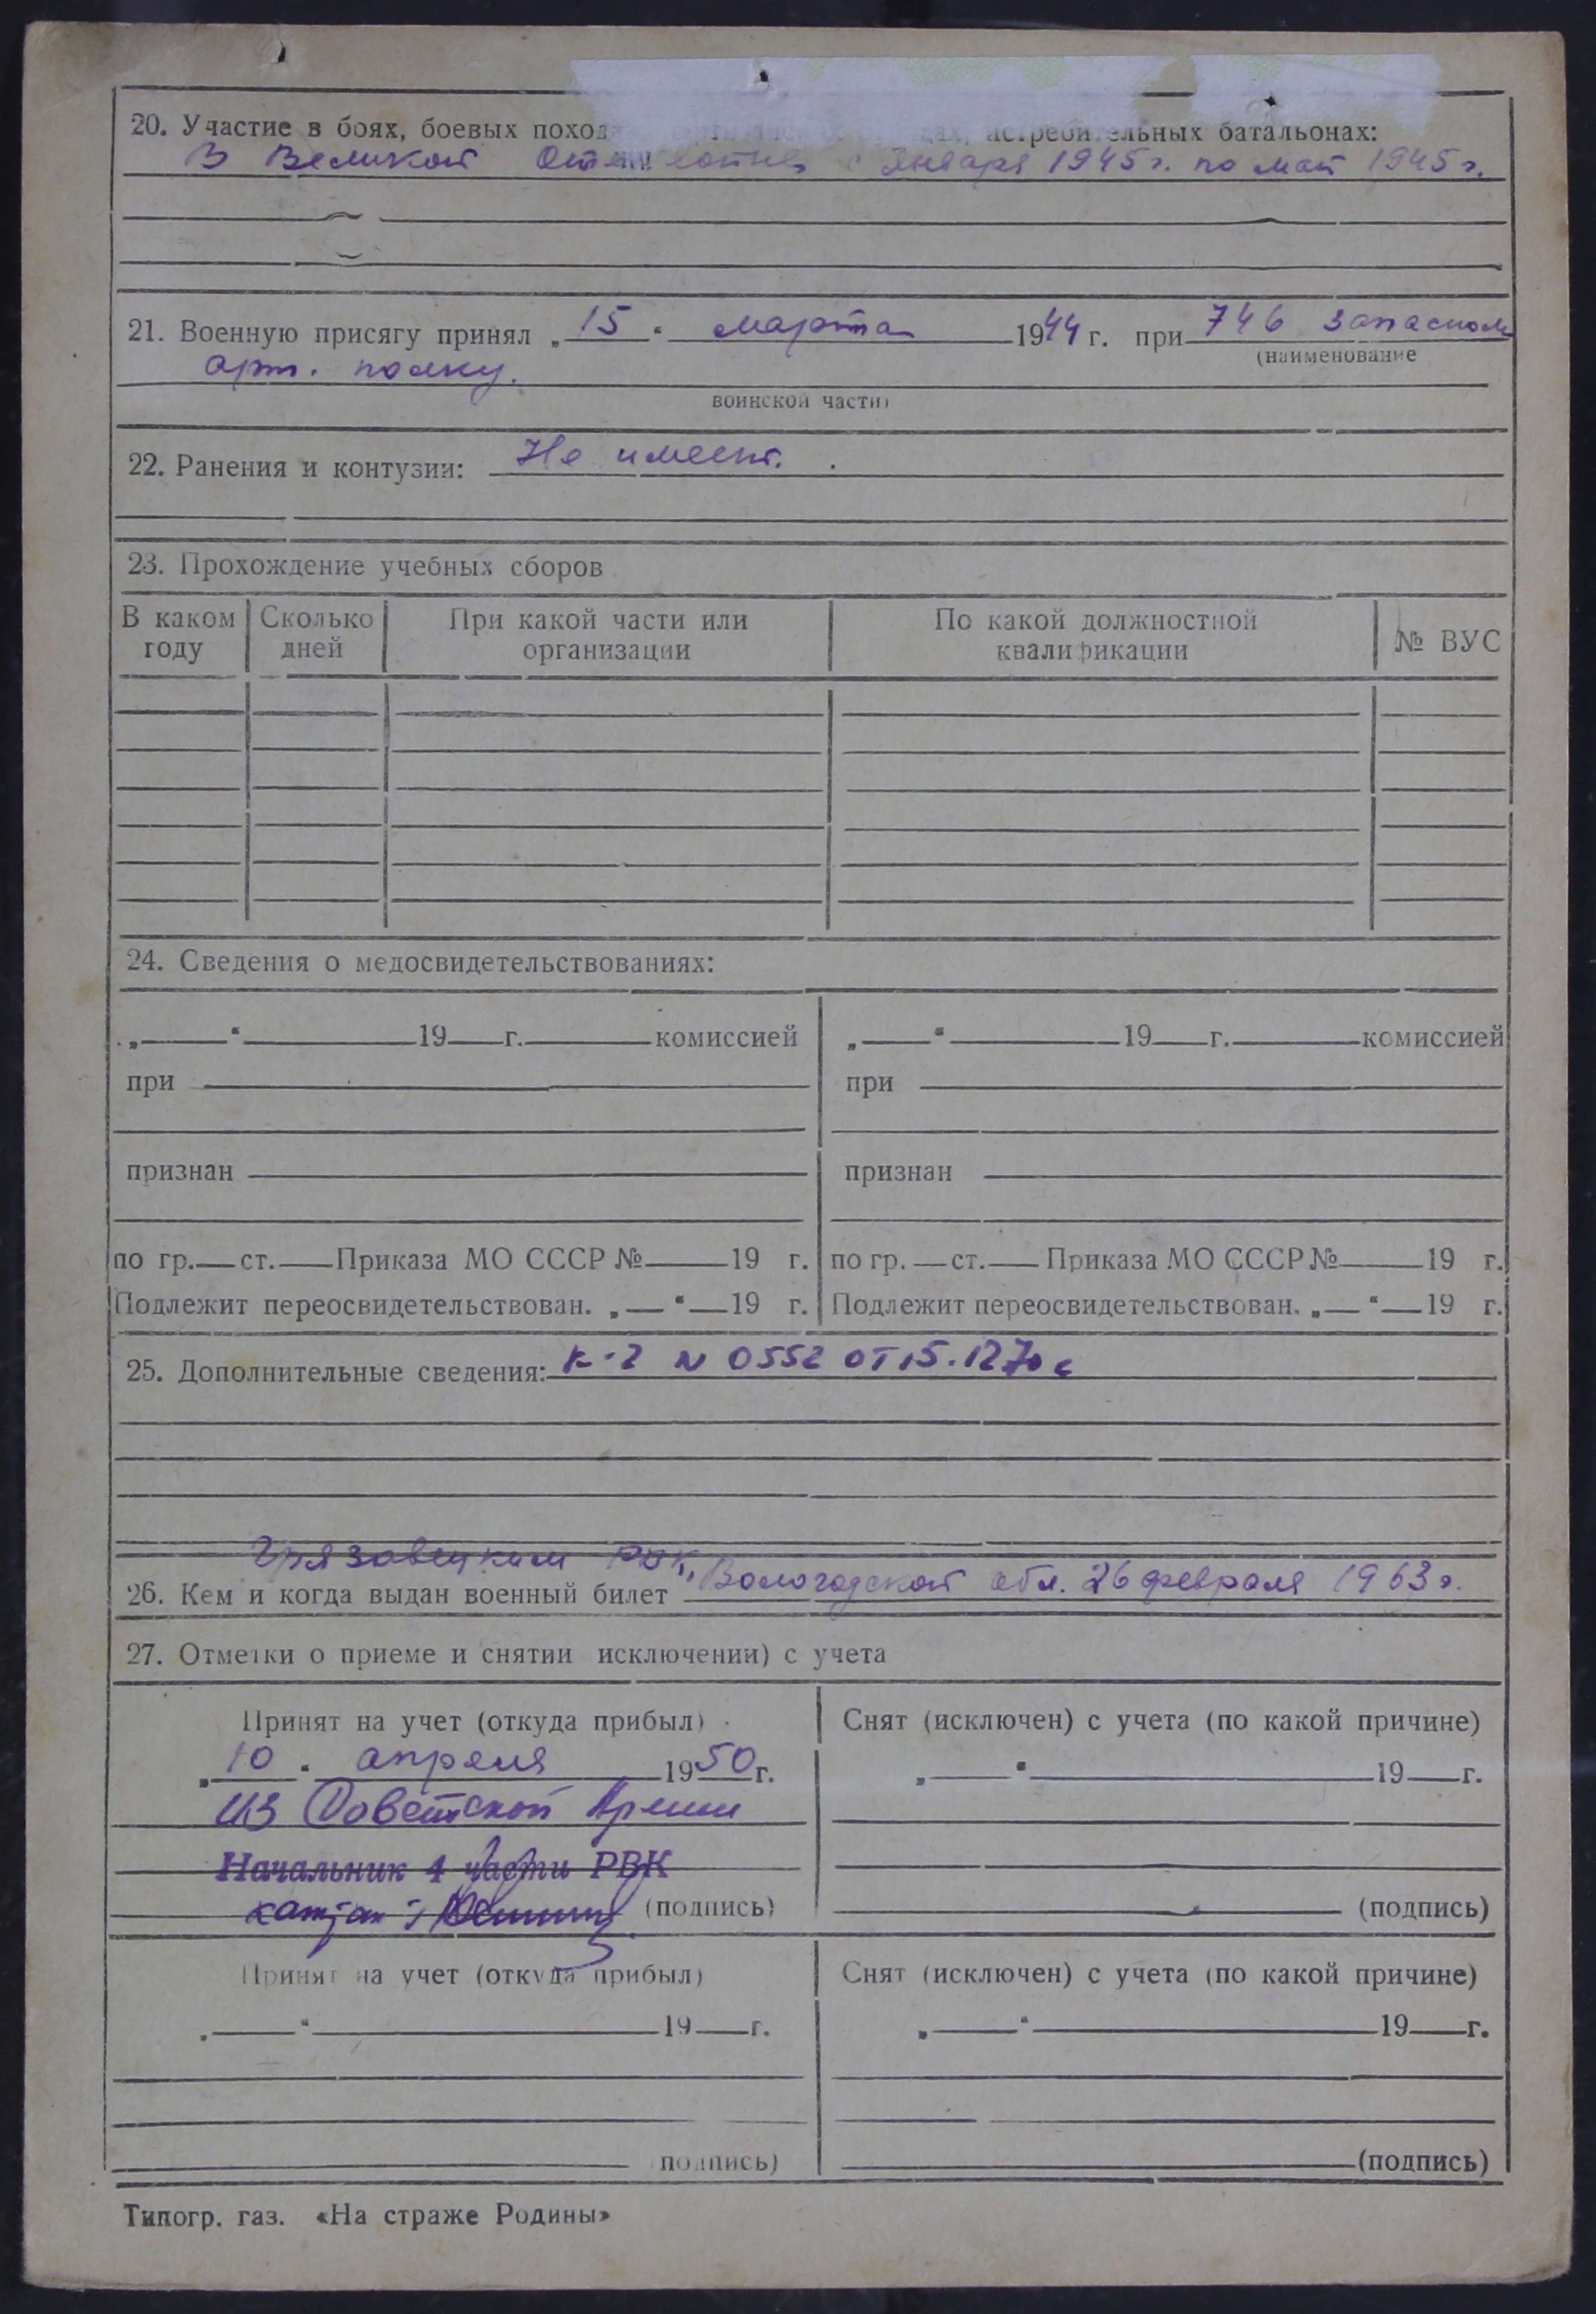 20. Участие в боях, боевых поход истребительных батальонах:
В Великой с Января 1945 г. по май 1945 г.
21. Военную присягу принял „ 15 “ марта 1944 г. при 746 запасном
(наименование
арт. полку.
воинской части)
22. Ранения и контузии: Не имеет.
23. Прохождение учебных сборов
В каком году Сколько дней При какой части или организации По какой должностной квалификации № ВУС
24. Сведения о медосвидетельствованиях:
„ “ 19 г. комиссией „ “ 19 г. комиссией
при при
признан признан
по гр. ст. Приказа МО СССР № 19 г. по гр. ст. Приказа МО СССР № 19 г.
Подлежит переосвидетельствован. „ “ 19 г. Подлежит переосвидетельствован. „ “ 19 г.
25. Дополнительные сведения: К-2 N 0552 от 15.12.70
Грязовецким РВК,
26. Кем и когда выдан военный билет Вологодской обл. 26 февраля 1963 г.
27. Отметки о приеме и снятии исключении) с учета
Принят на учет (откуда прибыл) Снят (исключен) с учета (по какой причине)
„ 10 “ апреля 1950 г. „ “ 19 г.
из Советской Армии
Начальник 4 части РВК
(подпись) (подпись)
Принят на учет (откуда прибыл) Снят (исключен) с учета (по какой причине)
„ “ 19 г. „ “ 19 г.
подпись) (подпись)
Типогр. газ. «На страже Родины»